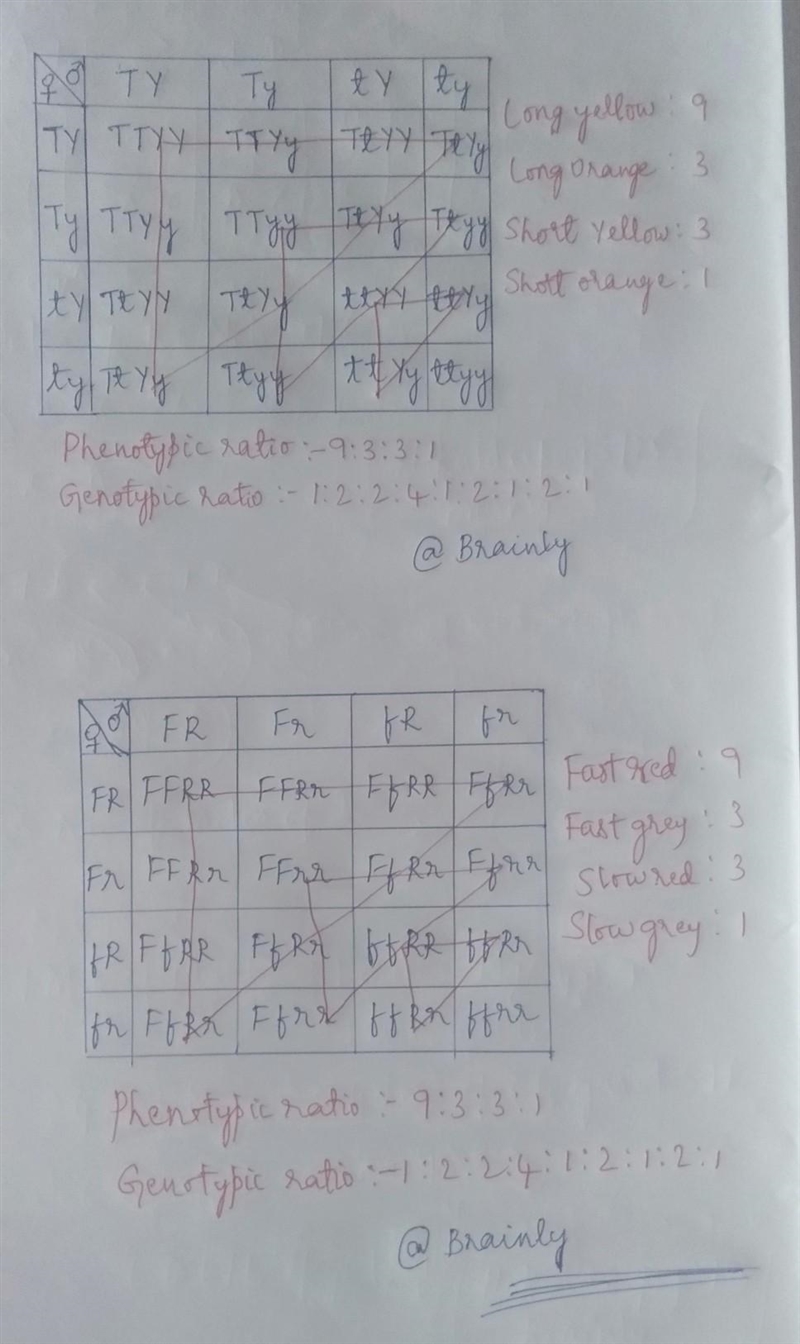 ♀ ♂ TY Ty tY ty
TY TTYY TTYy TtYY TtYy
Ty TTYy TTyy TtYy Ttyy
tY TtYY TtYy ttYY ttYy
ty TtYy Ttyy ttYy ttyy
Long yellow : 9
Long Orange : 3
Short Yellow : 3
Short orange : 1
Phenotypic ratio :- 9:3:3:1
Genotypic ratio :- 1:2:2:4:1:2:1:2:1
@ Brainly
♀ ♂ FR Fr fR fr
FR FFRR FFRr FfRR FfRr
Fr FFRr FFrr FfRr Ffrr
fR FfRR FfRr ffRR ffRr
fr FfRr Ffrr ffRr ffrr
Fast red : 9
Fast grey : 3
Slow red : 3
Slow grey : 1
Phenotypic ratio :- 9:3:3:1
Genotypic ratio :- 1:2:2:4:1:2:1:2:1
@ Brainly